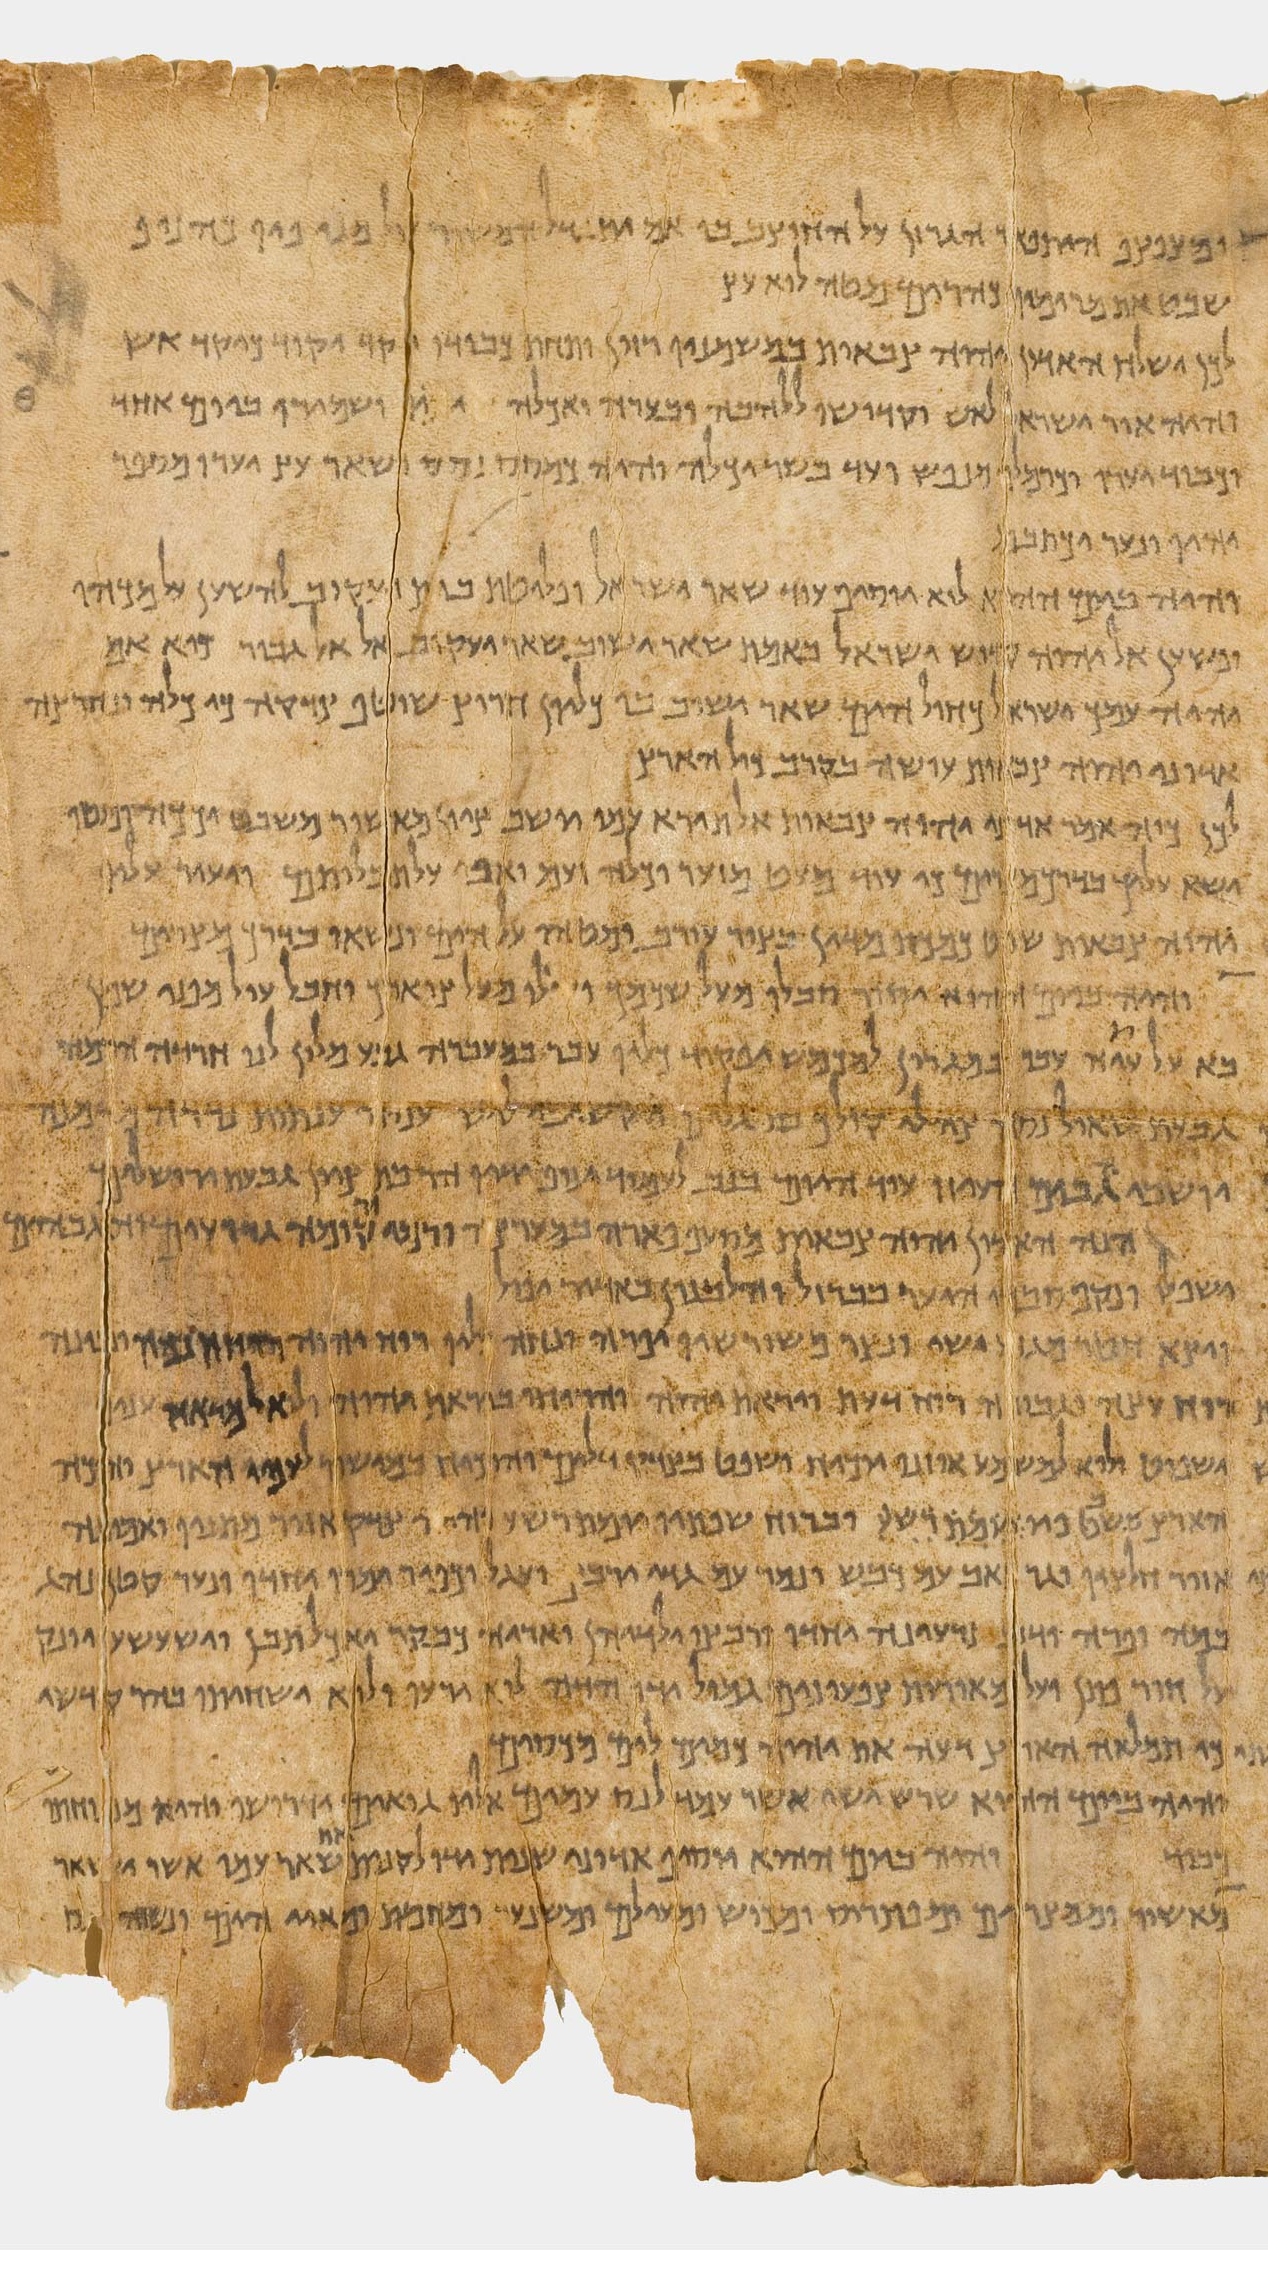 ומצפצף היתפאר הגרזן על החוצב בו אם יתגדל המשור על מניפו כהניף
שבט את מרימיו וכהרים מטה לוא עץ
לכן ישלח האדון יהוה צבאות במשמניו רזון ותחת כבודו יקד יקוד כיקד אש
והיה אור ישראל לאש וקדושו ללהבה ובערה ואכלה ושמירו ביום אחד
וכבוד יערו וכרמלו מנפש ועד בשר יכלה והיה כמסס נסס ושאר עץ יערו מספר
יהיו ונער יכתבם
והיה ביום ההוא לוא יוסיף עוד שאר ישראל ופליטת בית יעקוב להשען על מכהו
ונשען אל יהוה קדוש ישראל באמת שאר ישוב שאר יעקוב אל אל גבור כיא אם
יהיה עמך ישראל כחול הים שאר ישוב בו כליון חרוץ שוטף צדקה כי כלה ונחרצה
אדוני יהוה צבאות עושה בקרב כול הארץ
לכן כוה אמר אדוני יהוה צבאות אל תירא עמי יושב ציון מאשור משבט יככה ומטו
ישא עליך בדרך מצרים כי עוד מעט מזער וכלה זעם ואפי על תבליתם ויעיר עליו
יהוה צבאות שוט כמכת מדין בצור עורב ומטהו על הים ונשאו בדרך מצרים
והיה ביום ההוא יסור סבלו מעל שכמך ועולו מעל צוארך וחבל עול מפני שמן
בא על עית עבר במגרון למכמש יפקיד כליו עבר במעברה גבע מלון לנו חרדה הרמה
גבעת שאול נסה צהלי קולך בת גלים הקשיבי ליש עניה ענתות נדדה מדמנה
יושבי הגבים העיזו עוד היום בנב לעמוד יניף ידיו הר בת ציון גבעת ירושלים
הנה האדון יהוה צבאות מסעף פארה במערצה ורמי הקומה גדועים והגבהים
ישפלו ונקף סבכי היער בברזל והלבנון באדיר יפול
ויצא חטר מגזע ישי ונצר משורשיו יפרה ונחה עליו רוח יהוה רוח חכמה ובינה
רוח עצה וגבורה רוח דעת ויראת יהוה והריחו ביראת יהוה ולוא למראה עיניו
ישפוט ולוא למשמע אוזניו יוכיח ושפט בצדק דלים והוכיח במישור לענוי הארץ והכה
הארץ בשבט פיו יומת רשע וברוח שפתיו יומת רשע והיה צדק אזור מתניו ואמונה
אזור חלציו וגר זאב עם כבש ונמר עם גדי ירבץ ועגל וכפיר ימרו יחדיו ונער קטן נהג
במה ופרה ודוב תרעינה יחדו ורבצו ילדיהן ואריה כבקר יאכל תבן ושעשע יונק
על חור פתן ועל מאורת צפעונים גמול ידו הדה לוא ירעו ולוא ישחיתו בהר קודשי
כי תמלאה הארץ דעה את יהוה כמים לים מכסים
והיה ביום ההוא שרש ישי אשר עמד לנס עמים אליו גואים ידרושו והיה מנוחתו
כבוד והיה ביום ההוא יוסיף אדוני שנית ידו לקנות את שאר עמו אשר ישאר
מאשור וממצרים ומפתרוס ומכוש ומעילם ומשנער ומחמת ומאיי הים ונשא נס